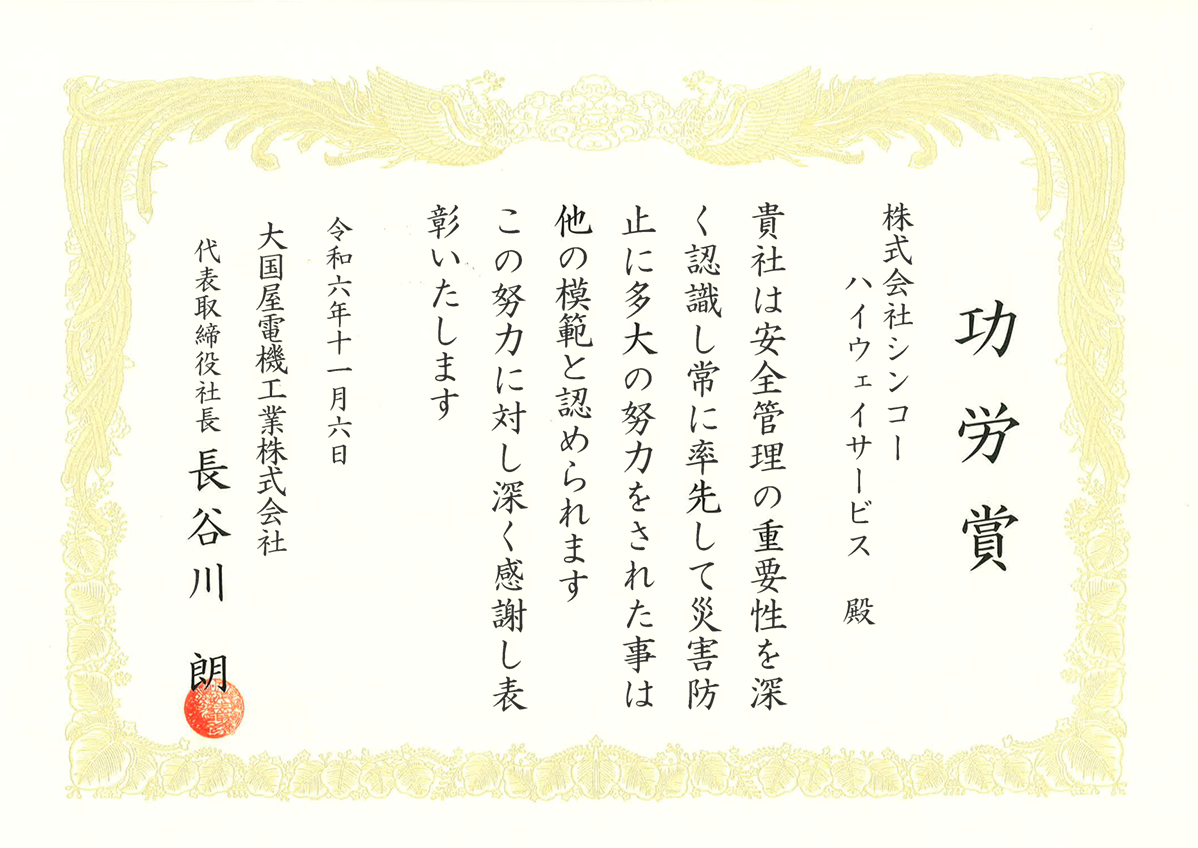 功労賞
株式会社シンコー
ハイウェイサービス 殿
貴社は安全管理の重要性を深
く認識し常に率先して災害防
止に多大の努力をされた事は
他の模範と認められます
この努力に対し深く感謝し表
彰いたします
令和六年十一月六日
大国屋電機工業株式会社
代表取締役社長 長谷川 朗